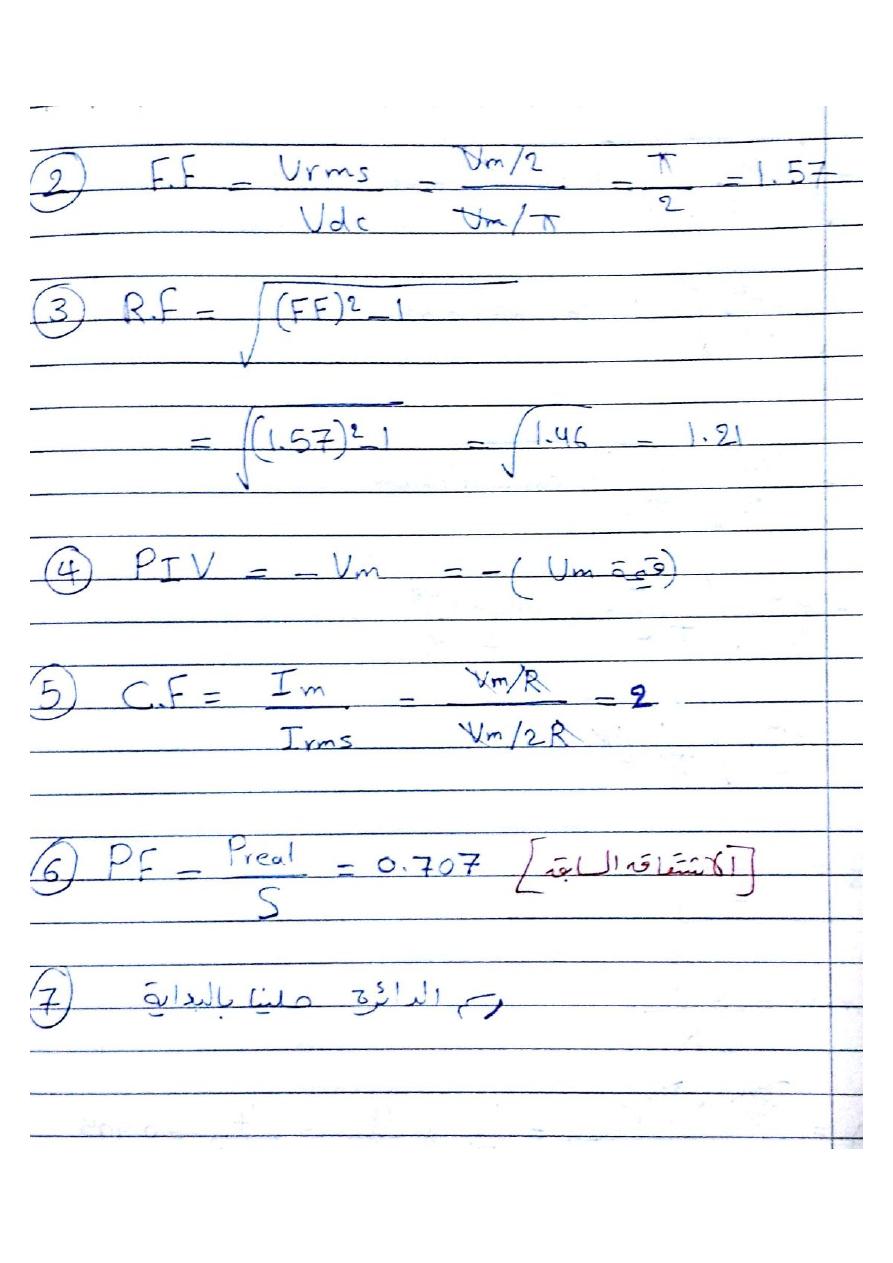 ② F.F = Vrms / Vdc = Vm/2 / Vm/π = π / 2 = 1.57
③ R.F = √(FF)² - 1
= √(1.57)² - 1 = √1.46 = 1.21
④ PIV = - Vm = - ( Vm قيمة )
⑤ C.F = Im / Irms = Vm/R / Vm/2R = 2
⑥ PF = Preal / S = 0.707 [الاشتقاقه السابقه]
⑦ رسم الدائرة حلينا بالبداية